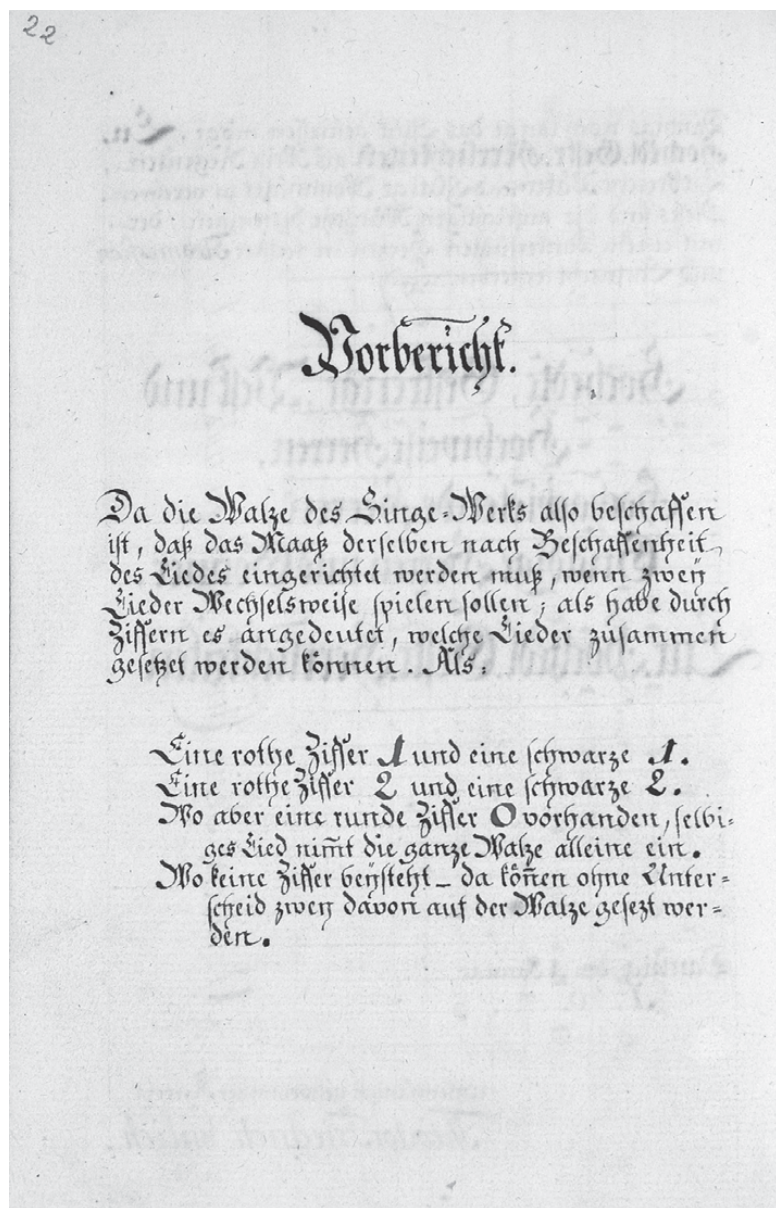 22
Vorbericht.
Da die Walze des Singe-Werks also beschaffen
ist, daß das Maaß derselben nach Beschaffenheit
des Liedes eingerichtet werden muß, wenn zwey
Lieder Wechselsweise spielen sollen; als habe durch
Ziffern es angedeutet, welche Lieder zusammen
gesetzet werden können. Als:
Eine rothe Ziffer 1 und eine schwarze 1.
Eine rothe Ziffer 2 und eine schwarze 2.
Wo aber eine runde Ziffer 0 vorhanden, selbi-
ges Lied nim̅t die ganze Walze alleine ein.
Wo keine Ziffer beysteht _ da kön̅en ohne Unter-
scheid zwey davon auf der Walze gesezt wer-
den.